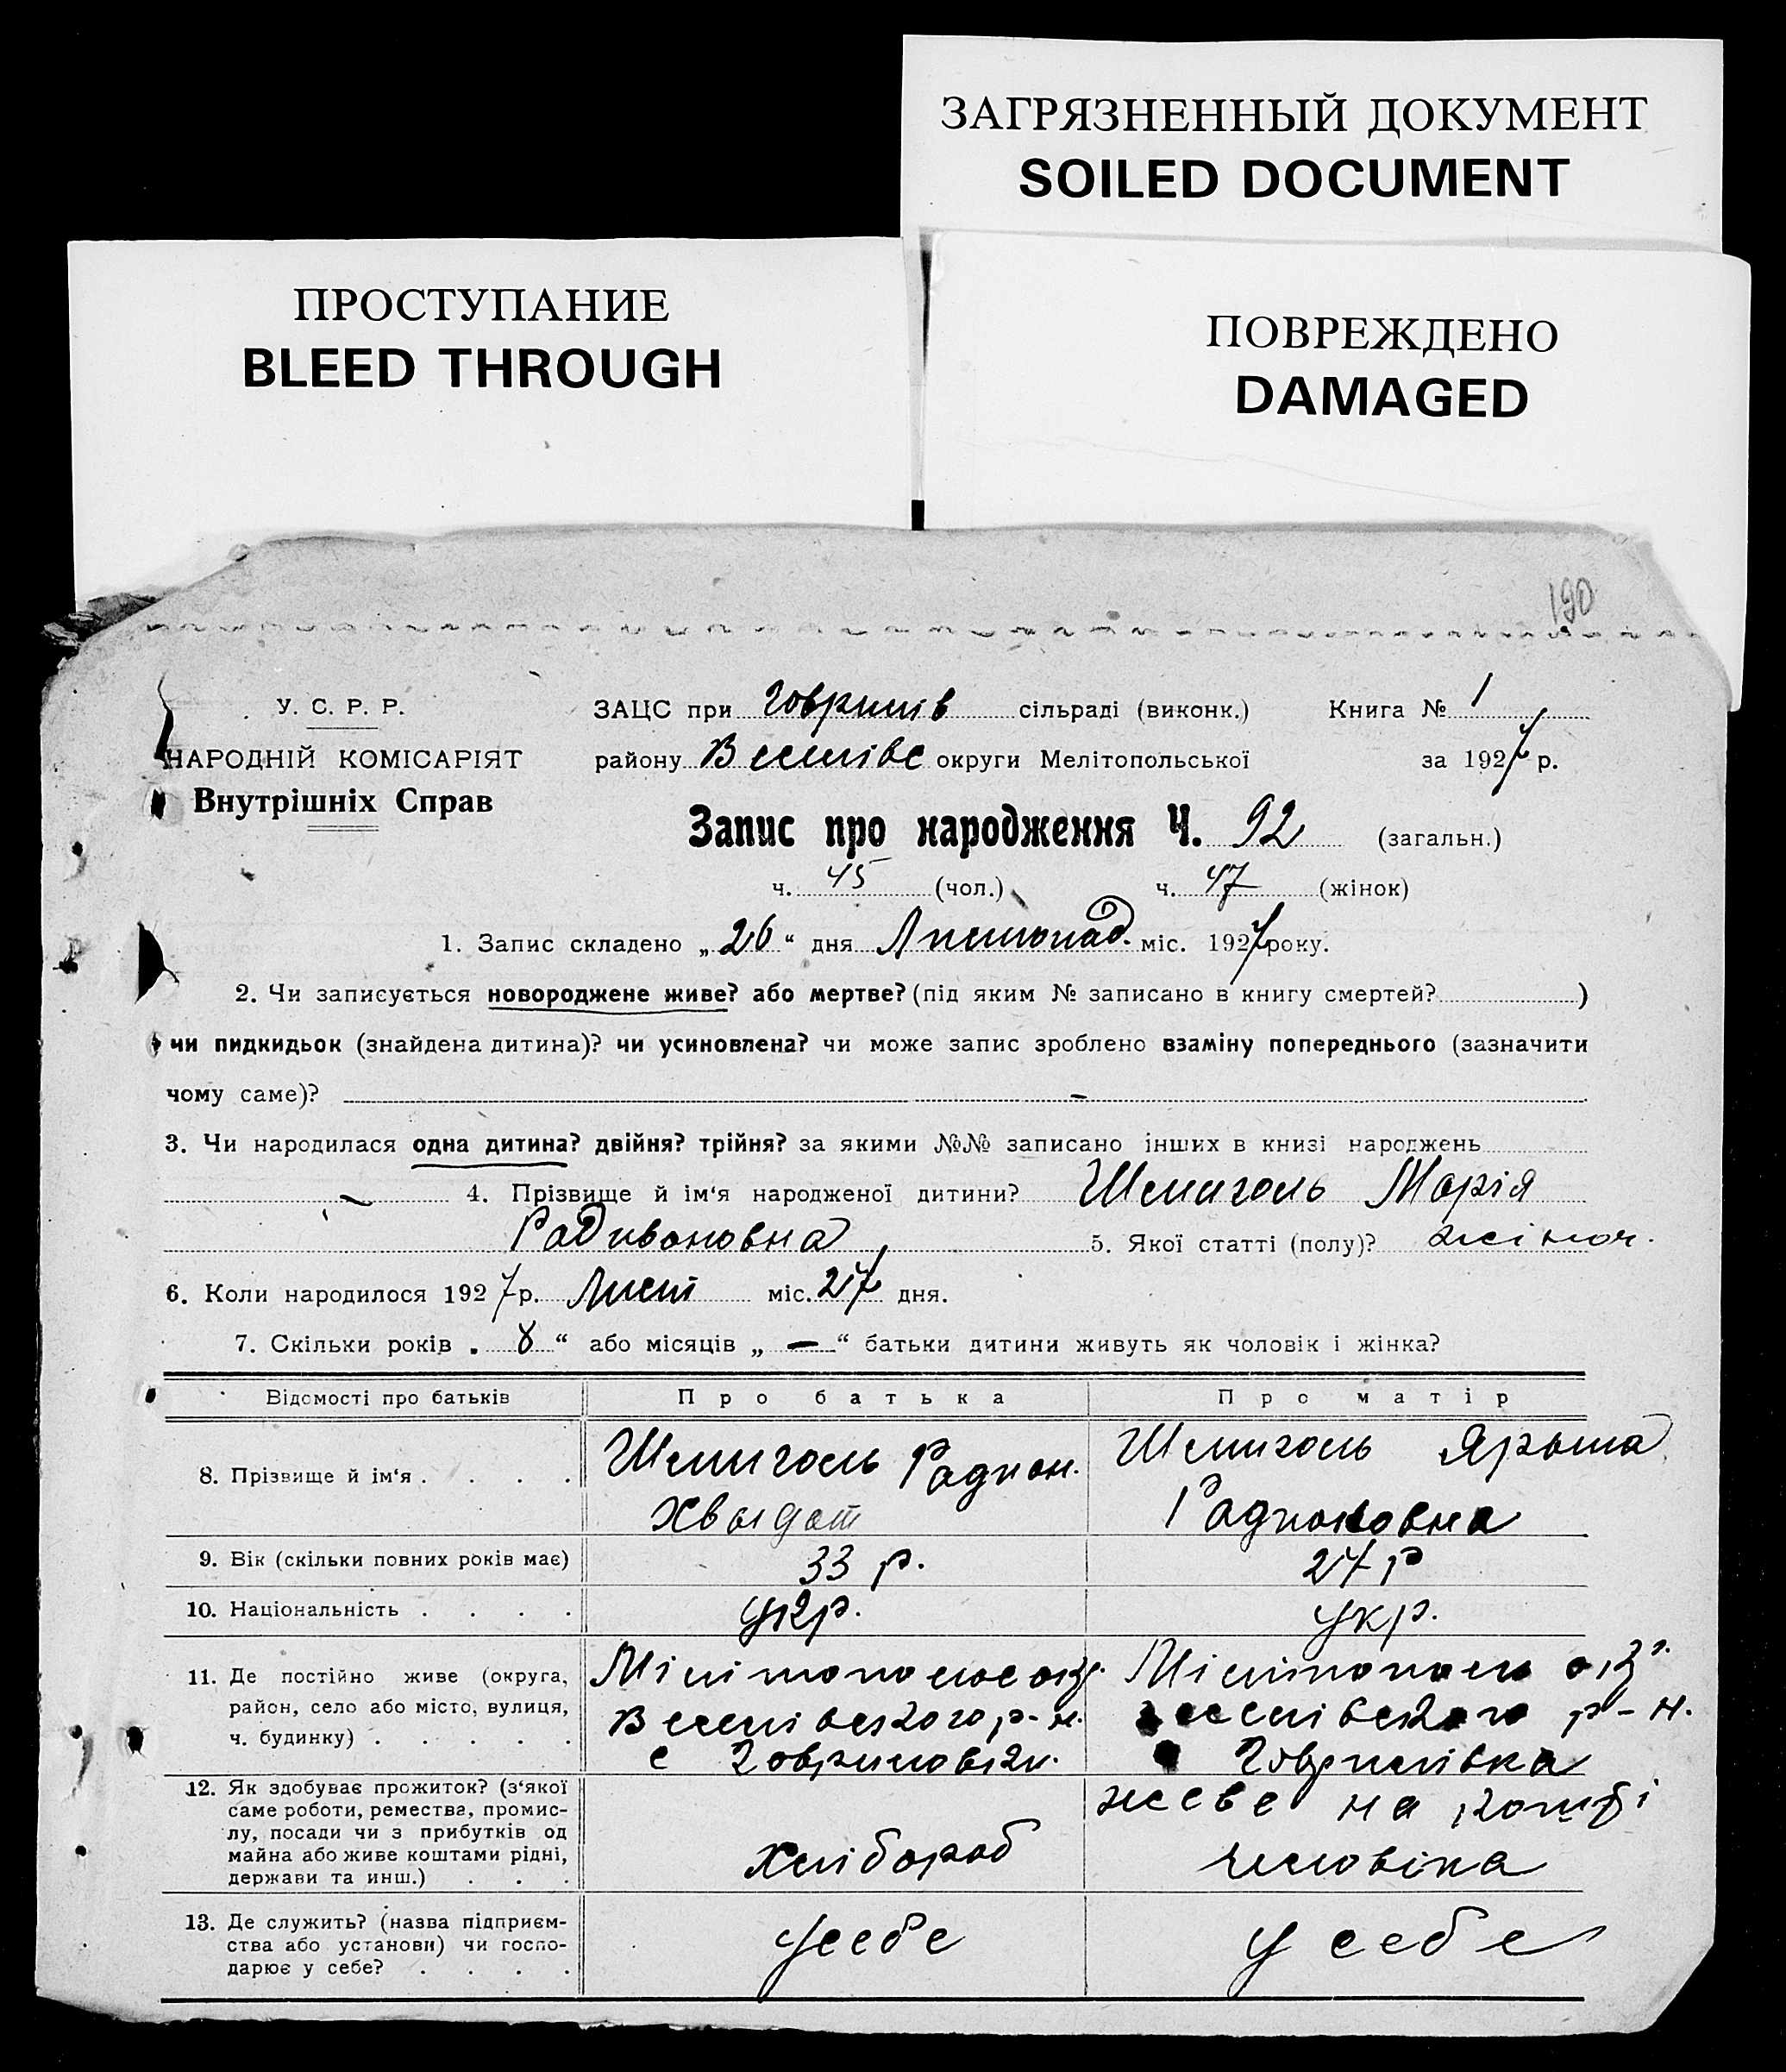 ЗАГРЯЗНЕННЫЙ ДОКУМЕНТ
SOILED DOCUMENT
ПРОСТУПАНИЕ
BLEED THROUGH
ПОВРЕЖДЕНО
DAMAGED
190
У. С. Р. Р.
НАРОДНІЙ КОМІСАРІЯТ
Внутрішніх Справ
ЗАЦС при Гаврилів сільраді (виконк.) Книга № 1
району Веселівс округи Мелітопольської за 1927 р.
Запис про народження Ч. 92 (загальн.)
ч. 45 (чол.) ч. 47 (жінок)
1. Запис складено „26“ дня Листопад. міс. 1927 року.
2. Чи записується новороджене живе? або мертве? (під яким № записано в книгу смертей? )
чи пидкидьок (знайдена дитина)? чи усиновлена? чи може запис зроблено взаміну попереднього (зазначити
чому саме)? –
3. Чи народилася одна дитина? двійня? трійня? за якими №№ записано інших в книзі народжень
– 4. Прізвище й ім‘я народженої дитини? Шмиголь Марія
Радивоновна 5. Якої статті (полу)? жіноч.
6. Коли народилося 1927 р. Лист міс. 27 дня.
7. Скільки років „ 8 “ або місяців „ — “ батьки дитини живуть як чоловік і жінка?
Відомості про батьків Про батька Про матір
8. Прізвище й ім‘я . . . . Шмиголь Радион. Шмиголь Ярына
Радионовна
9. Вік (скільки повних років має) 33 р. 27 р
10. Національність . . . . укр. укр.
11. Де постійно живе (округа, Мілітопольс окр. Мілітополь окр.
район, село або місто, вулиця, Веселівського р-н. веселівського р-н.
ч. будинку) . . . . . с Гавриловки. Гаврилівка
12. Як здобуває прожиток? (з‘якої живе на кошті
саме роботи, ремества, промис-
лу, посади чи з прибутків од
майна або живе коштами рідні, хлібороб чиловіка
держави та инш.) . . .
13. Де служить? (назва підприєм-
ства або установи) чи госпо- усебе у себе
дарює у себе? . . . .